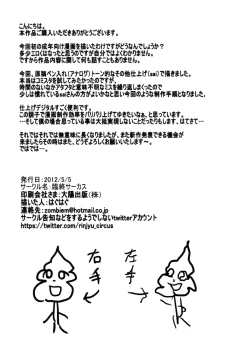 こんにちは。
本作品ご購入いただきありがとうございます。
今回初の成年向け漫画を描いたわけですがどうなんでしょうか？
多少エロくはなったと思うのですが自分ではよくわかりません。
ですから作品内容に関して何も話すこともありません。
今回、原稿ペン入れ（アナログ）トーン的なその他仕上げ（sai）で描きました。
本当はコミスタを試してみたかったのですが、
時間のないなかアタフタと意味不明なミスを繰り返しまくったので
少しは慣れているsaiさんの方がよいかなと思い今回のような制作手順となりました。
仕上げデジタルすごく便利です。
この調子で漫画制作効率をバリバリ上げてゆきたいなぁ、と思います。
…そして僕の場合思っている事は大抵実現しないことだったりもします、はてさて…
それではそれでは無意味に長くなりましたが、また新作発表できる機会が
来ましたらそのときは、またどうぞよろしくお願いいたします～。
ではでは…。
発行日：2012/5/5
サークル名：臨終サーカス
印刷会社さま：大陽出版（株）
描いた人：はぐはぐ
連絡先：zombiem@hotmail.co.jp
サークル告知などをするようでしないtwitterアカウント
https://twitter.com/rinjyu_circus
右手
左手